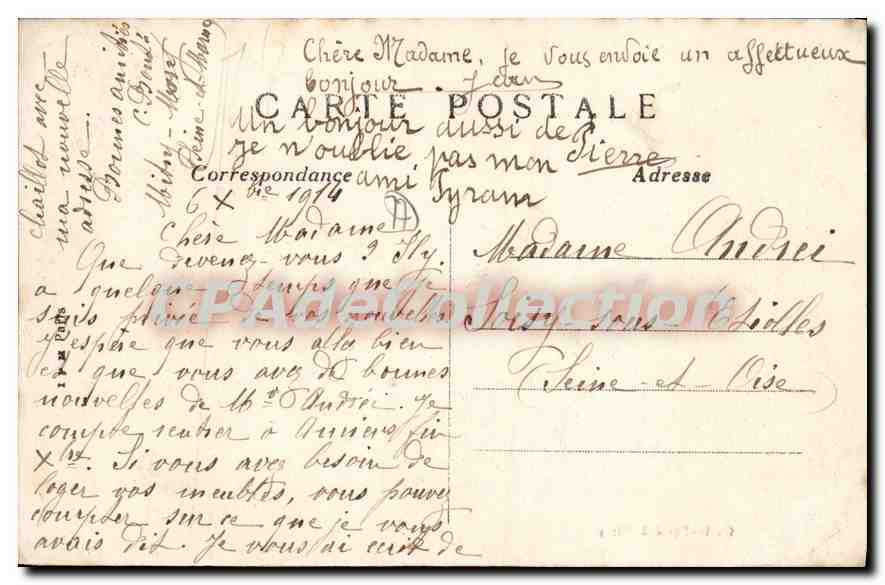 Chère Madame, je vous envoie un affectueux
bonjour. Jean
CARTE POSTALE
Un bonjour aussi de Pierre
Je n'oublie pas mon
ami Tyram
Correspondance
Adresse
6 Xbre 1914
Chère Madame
Que devenez-vous? Il y
a quelque temps que je
suis privée de vos nouvelles
J'espère que vous allez bien
et que vous avez de bonnes
nouvelles de Mr Andréi. Je
compte rentrer à Asnières fin
Xbre. Si vous avez besoin de
loger vos meubles, vous pouvez
compter sur ce que je vous
avais dit. Je vous ai écrit de
Chaillot avec
ma nouvelle
adresse.
Bonnes amitiés
Mitry-Mory
Seine-et-Marne
Madame Andréi
Soisy-sous-Etiolles
Seine-et-Oise
Paris
LPAdeCollection